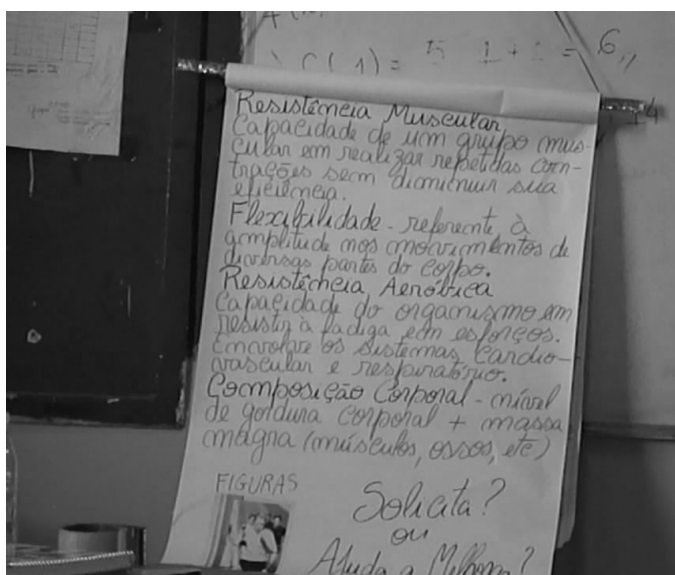 C(1) = 5 . 1 + 1 = 6,,
Resistência Muscular
Capacidade de um grupo mus-
cular em realizar repetidas con-
trações sem diminuir sua
eficiência.
Flexibilidade - referente à
amplitude nos movimentos de
diversas partes do corpo.
Resistência Aeróbica
Capacidade do organismo em
resistir à fadiga em esforços.
Envolve os sistemas cardio-
vascular e respiratório.
Composição Corporal - nível
de gordura corporal + massa
magra (músculos, ossos, etc)
FIGURAS
Solicita?
ou
Ajuda a Melhorar?